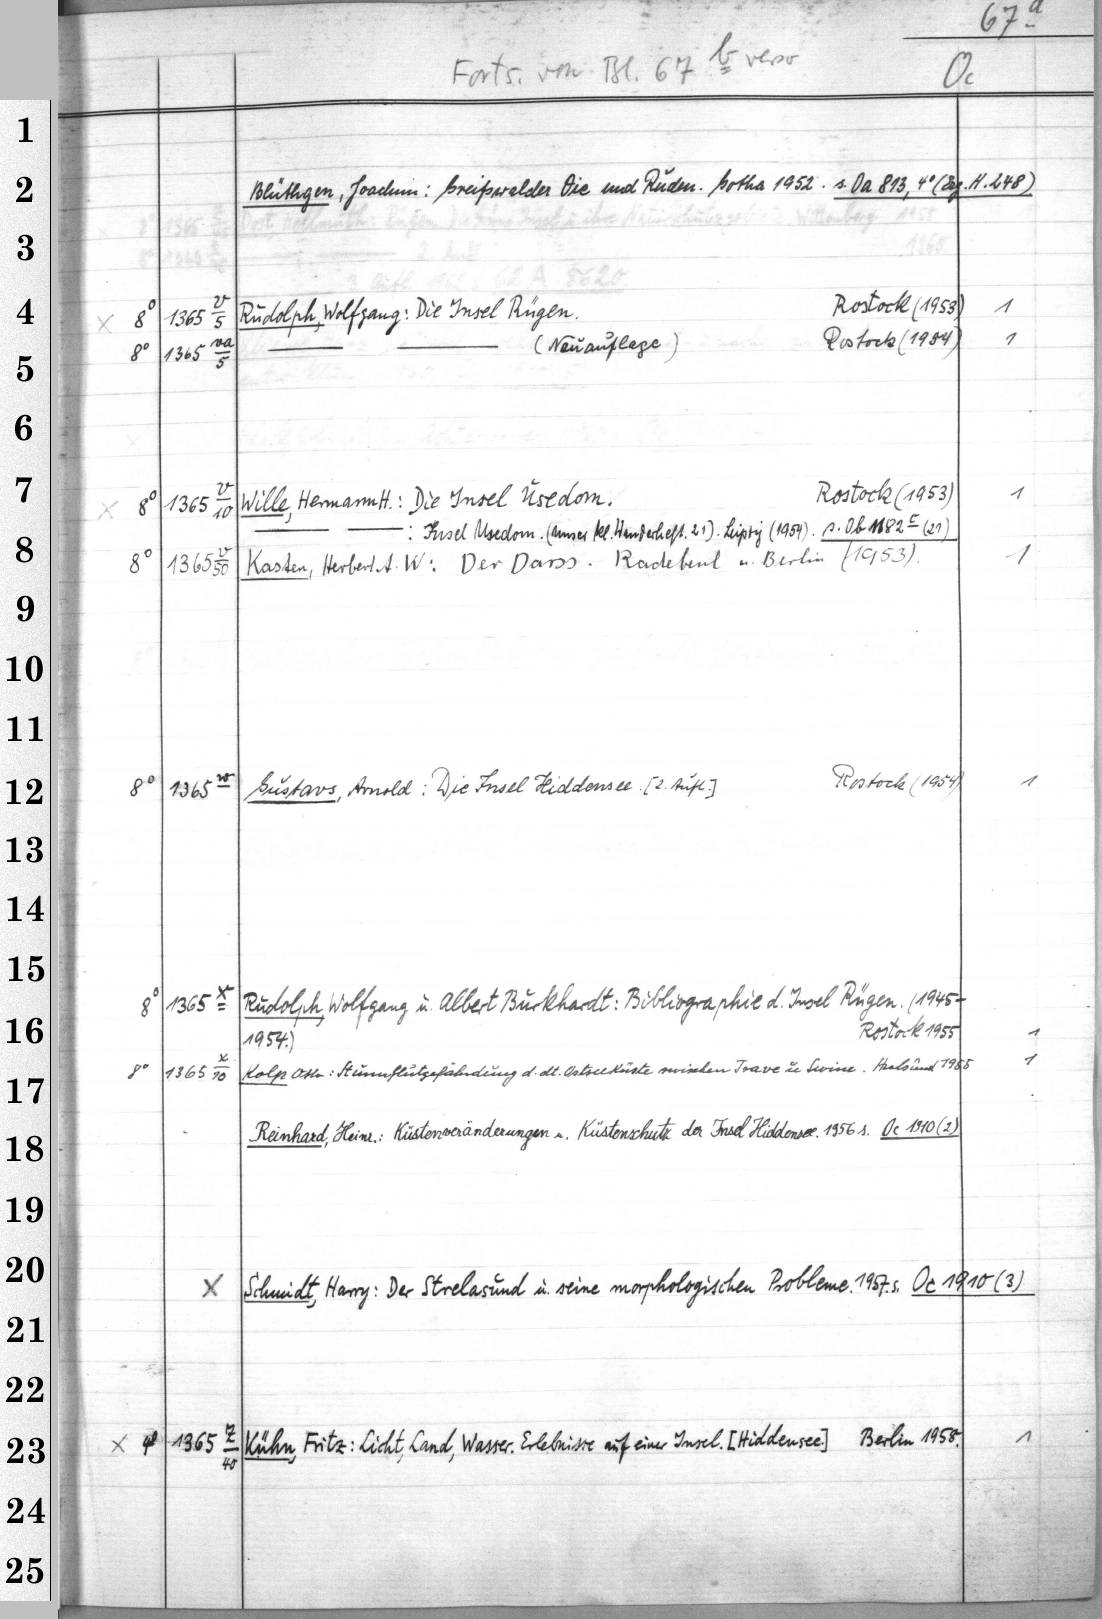 67a
Forts. von Bl. 67 b verso
Oc
1
2 Blüthgen, Joachim: Greifswalder Oie und Ruden. Gotha 1952. s. Oa 813, 4° (Erg. H. 248)
3
4 × 8° 1365 v/5 Rudolph, Wolfgang: Die Insel Rügen. Rostock (1953) 1
8° 1365 va/5 — — (Neuauflage) Rostock (1954) 1
5
6
7 × 8° 1365 v/10 Wille, Hermann H.: Die Insel Usedom. Rostock (1953) 1
— — : Insel Usedom. (Unser kl. Wanderheft. 21). Leipzig (1954). s. Ob 1182 c (21)
8 8° 1365 v/50 Kasten, Herbert A. W: Der Darss. Radebeul u. Berlin (1953). 1
9
10
11
12 8° 1365 w Gustavs, Arnold: Die Insel Hiddensee. [2. Aufl.] Rostock (1954) 1
13
14
15
8° 1365 x Rudolph, Wolfgang u. Albert Burkhardt: Bibliographie d. Insel Rügen. (1945-
16 1954.) Rostock 1955 1
8° 1365 x/10 Kolp Otto: Sturmflutgefährdung d. dt. Ostseeküste zwischen Trave u. Swine. Stralsund 1955 1
17
18 Reinhard, Heinr.: Küstenveränderungen u. Küstenschutz der Insel Hiddensee. 1956 s. Oc 1910 (2)
19
20 × Schmidt, Harry: Der Strelasund u. seine morphologischen Probleme. 1957. s. Oc 1910 (3)
21
22
23 × 4° 1365 z/40 Kühn, Fritz: Licht, Land, Wasser. Erlebnisse auf einer Insel. [Hiddensee] Berlin 1958. 1
24
25